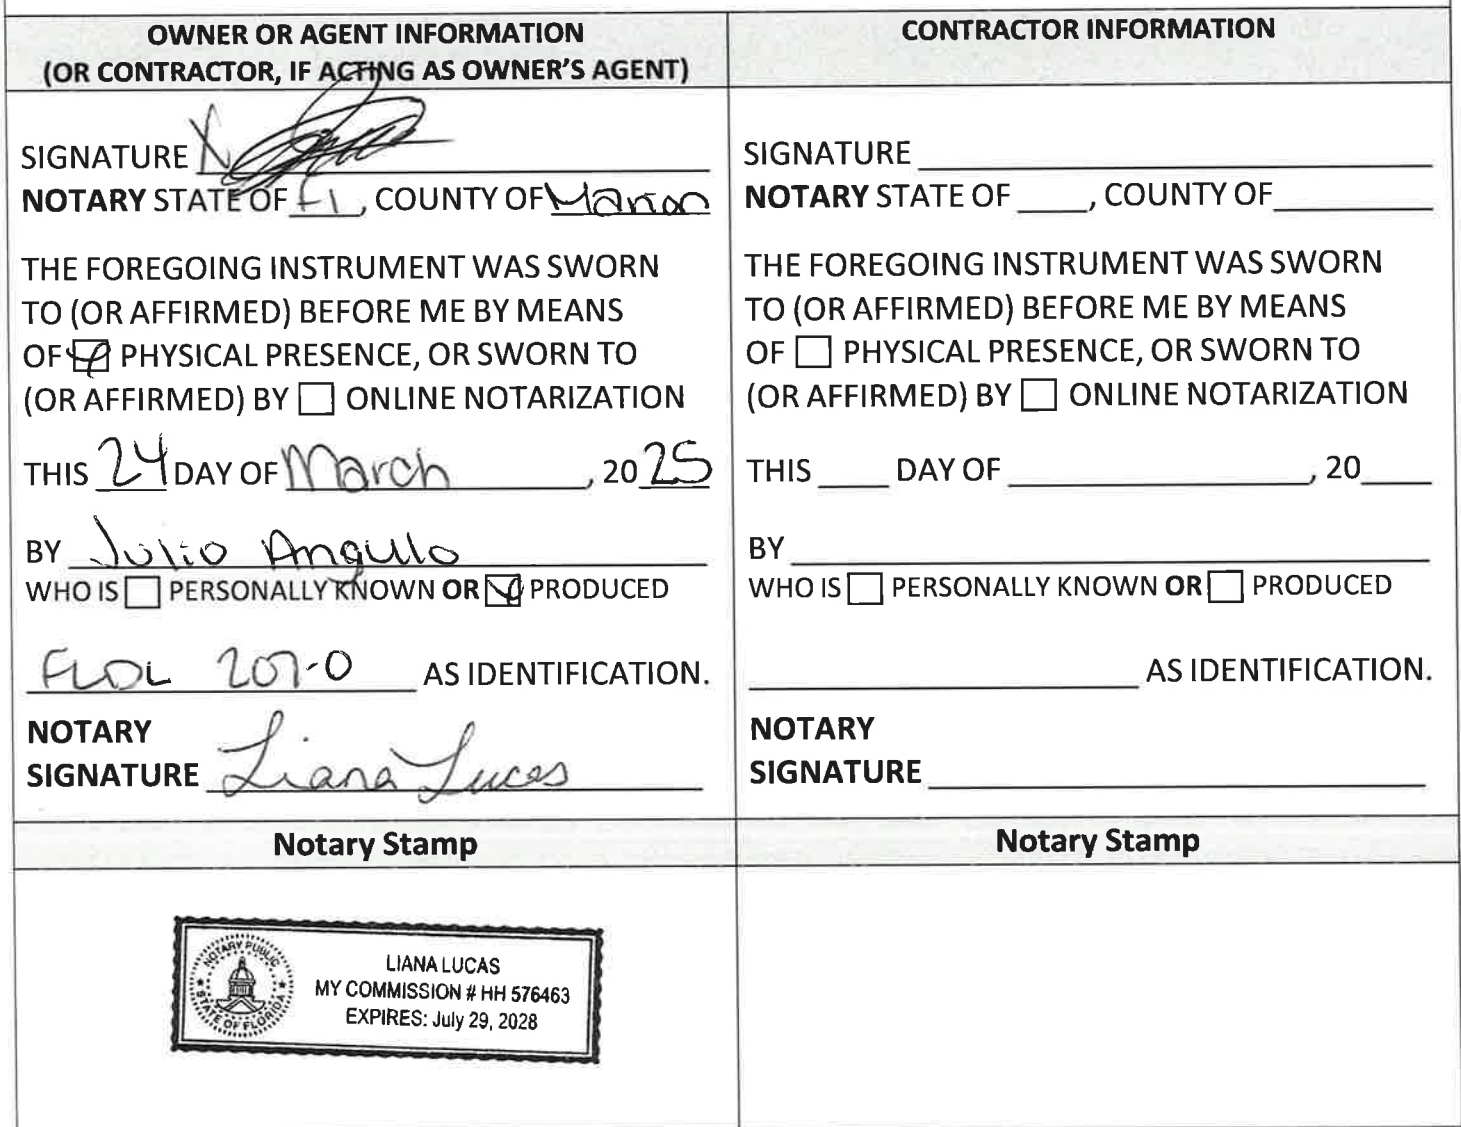 OWNER OR AGENT INFORMATION
(OR CONTRACTOR, IF ACTING AS OWNER'S AGENT)
SIGNATURE X
NOTARY STATE OF Fl, COUNTY OF Marion
THE FOREGOING INSTRUMENT WAS SWORN
TO (OR AFFIRMED) BEFORE ME BY MEANS
OF ☑ PHYSICAL PRESENCE, OR SWORN TO
(OR AFFIRMED) BY ☐ ONLINE NOTARIZATION
THIS 24 DAY OF March, 2025
BY Julio Angulo
WHO IS ☐ PERSONALLY KNOWN OR ☑ PRODUCED
FLDL 207-0 AS IDENTIFICATION.
NOTARY
SIGNATURE Liana Lucas
Notary Stamp
NOTARY PUBLIC
STATE OF FLORIDA
LIANA LUCAS
MY COMMISSION # HH 576463
EXPIRES: July 29, 2028
CONTRACTOR INFORMATION
SIGNATURE
NOTARY STATE OF ____, COUNTY OF
THE FOREGOING INSTRUMENT WAS SWORN
TO (OR AFFIRMED) BEFORE ME BY MEANS
OF ☐ PHYSICAL PRESENCE, OR SWORN TO
(OR AFFIRMED) BY ☐ ONLINE NOTARIZATION
THIS ____ DAY OF ____, 20____
BY
WHO IS ☐ PERSONALLY KNOWN OR ☐ PRODUCED
AS IDENTIFICATION.
NOTARY
SIGNATURE
Notary Stamp